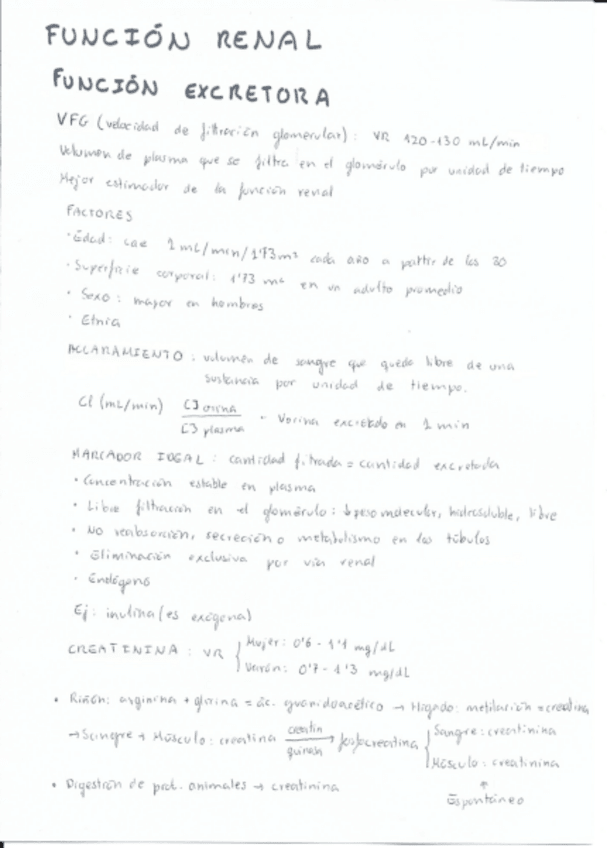 FUNCIÓN RENAL
FUNCIÓN EXCRETORA
VFG (velocidad de filtración glomerular): VR 120-130 mL/min
Volumen de plasma que se filtra en el glomérulo por unidad de tiempo
Mejor estimador de la función renal
FACTORES
· Edad: cae 1 mL/min/1'73m² cada año a partir de los 30
· Superficie corporal: 1'73 m² en un adulto promedio
· Sexo: mayor en hombres
· Etnia
ACLARAMIENTO: volumen de sangre que queda libre de una
sustancia por unidad de tiempo.
Cl (mL/min) [] orina / [] plasma · Vorina excretado en 1 min
MARCADOR IDEAL: cantidad filtrada = cantidad excretada
· Concentración estable en plasma
· Libre filtración en el glomérulo: ↓peso molecular, hidrosoluble, libre
· No reabsorción, secreción o metabolismo en los túbulos
· Eliminación exclusiva por vía renal
· Endógeno
Ej: inulina (es exógena)
CREATININA: VR { Mujer: 0'6 - 1'1 mg/dL
Varón: 0'7 - 1'3 mg/dL
· Riñón: arginina + glicina = ác. guanidoacético → Hígado: metilación = creatina
→ Sangre → Músculo: creatina creatin quinasa → fosfocreatina { Sangre: creatinina
Músculo: creatinina
· Digestión de prot. animales → creatinina
↑
Espontáneo